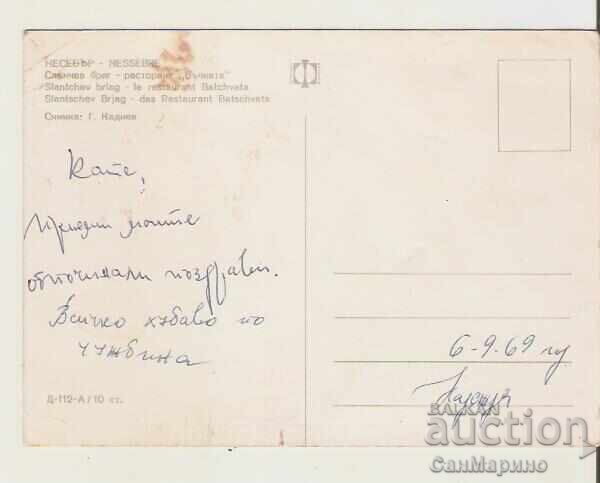 НЕСЕБЪР - NESSEBRE
Слънчев бряг - ресторант „Бъчвата"
Slantchev briag - le restaurant Batchvata
Slantschev Brjag - das Restaurant Batschvata
Снимка: Г. Кадиев
Кате,
Приеми моите
поздрави.
Всичко хубаво по
чужбина
Д-112-А/10 ст.
6-9-69 г
BALKAN
auction
СанМарино